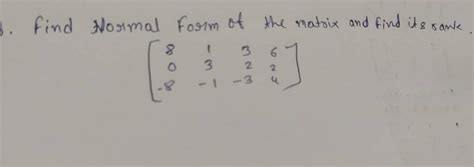 . Find Normal Form of the matrix and find its rank.
8 1 3 6
0 3 2 2
-8 -1 -3 4